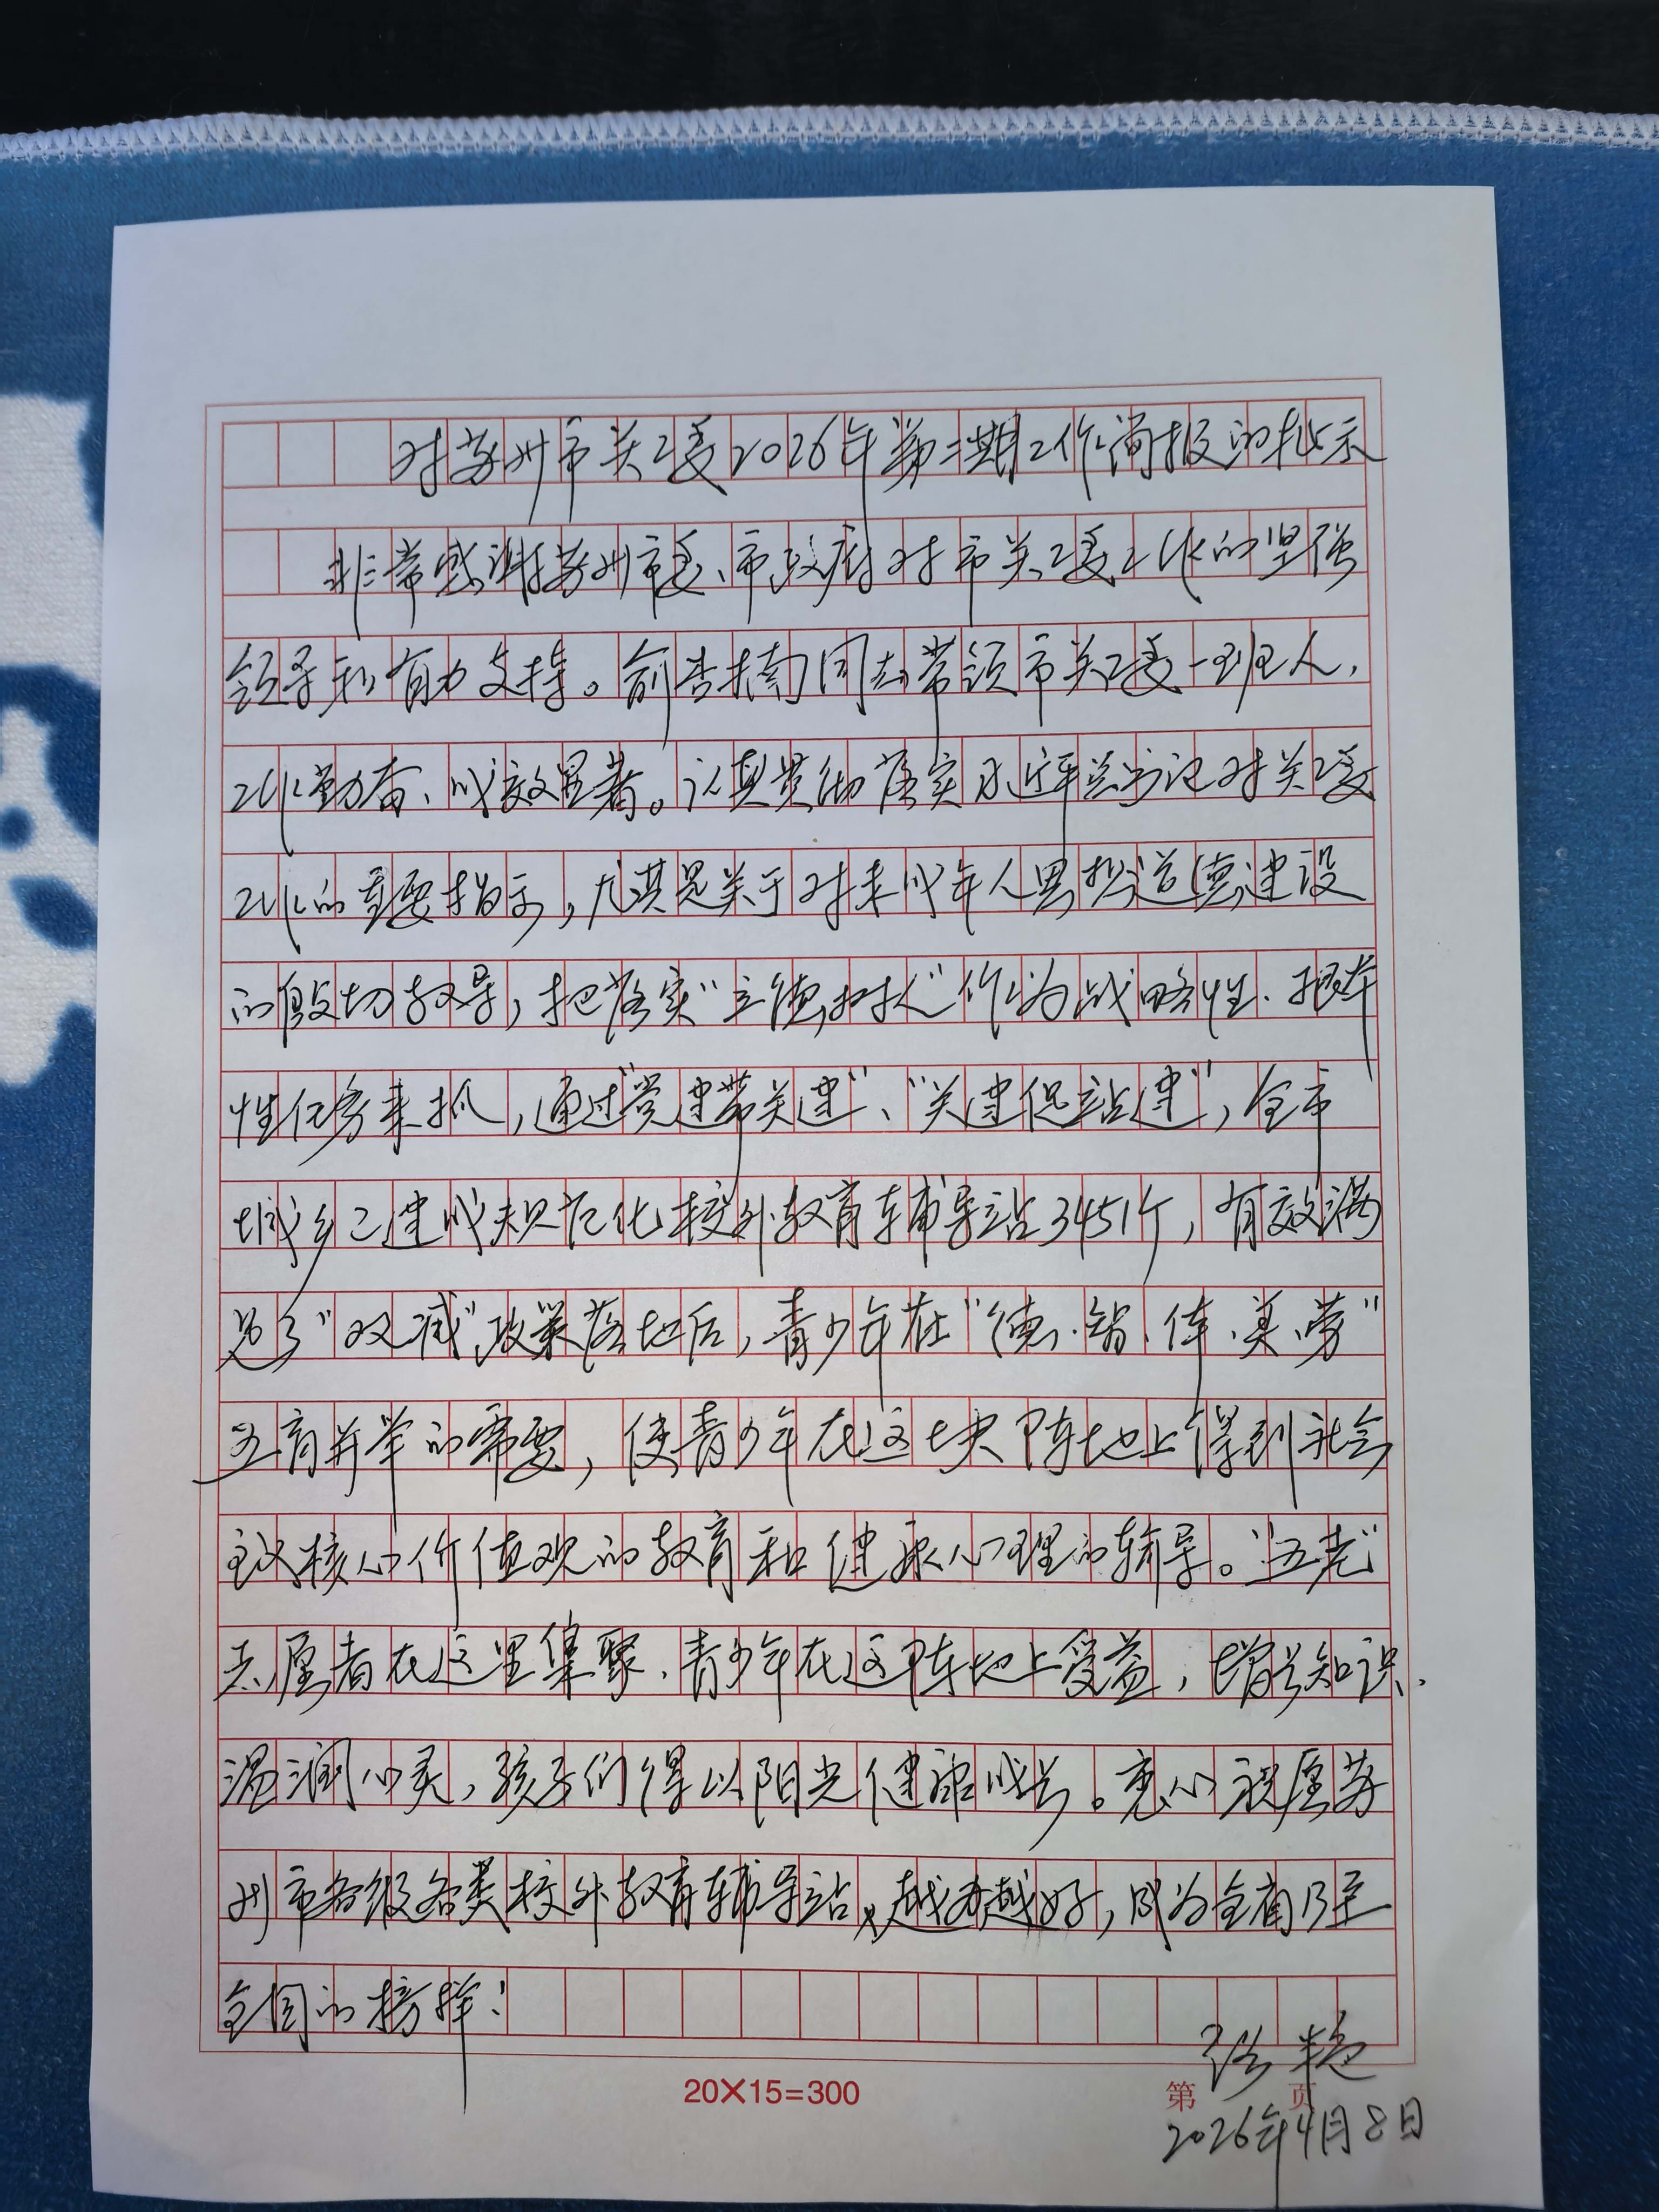 对苏州市关工委2026年第二期工作简报的批示
非常感谢苏州市委、市政府对市关工委工作的坚强
领导和有力支持。俞杏楠同志带领市关工委一班人,
工作勤奋、成效显著。认真贯彻落实习近平总书记对关工委
工作的重要指示,尤其是关于对未成年人思想道德建设
的殷切教导,把落实“立德树人”作为战略性、根本
性任务来抓,通过“党建带关建”、“关建促站建”,全市
城乡已建成规范化校外教育辅导站3451个,有效满
足了“双减”政策落地后,青少年在“德、智、体、美、劳”
五育并举的需要,使青少年在这块阵地上得到社会
主义核心价值观的教育和健康心理的辅导。“五老”
志愿者在这里集聚、青少年在这阵地上受益,增长知识、
温润心灵,孩子们得以阳光健康成长。衷心祝愿苏
州市各级各类校外教育辅导站、越办越好,成为全省乃至
全国的榜样!
20×15=300
第 页
2026年4月8日